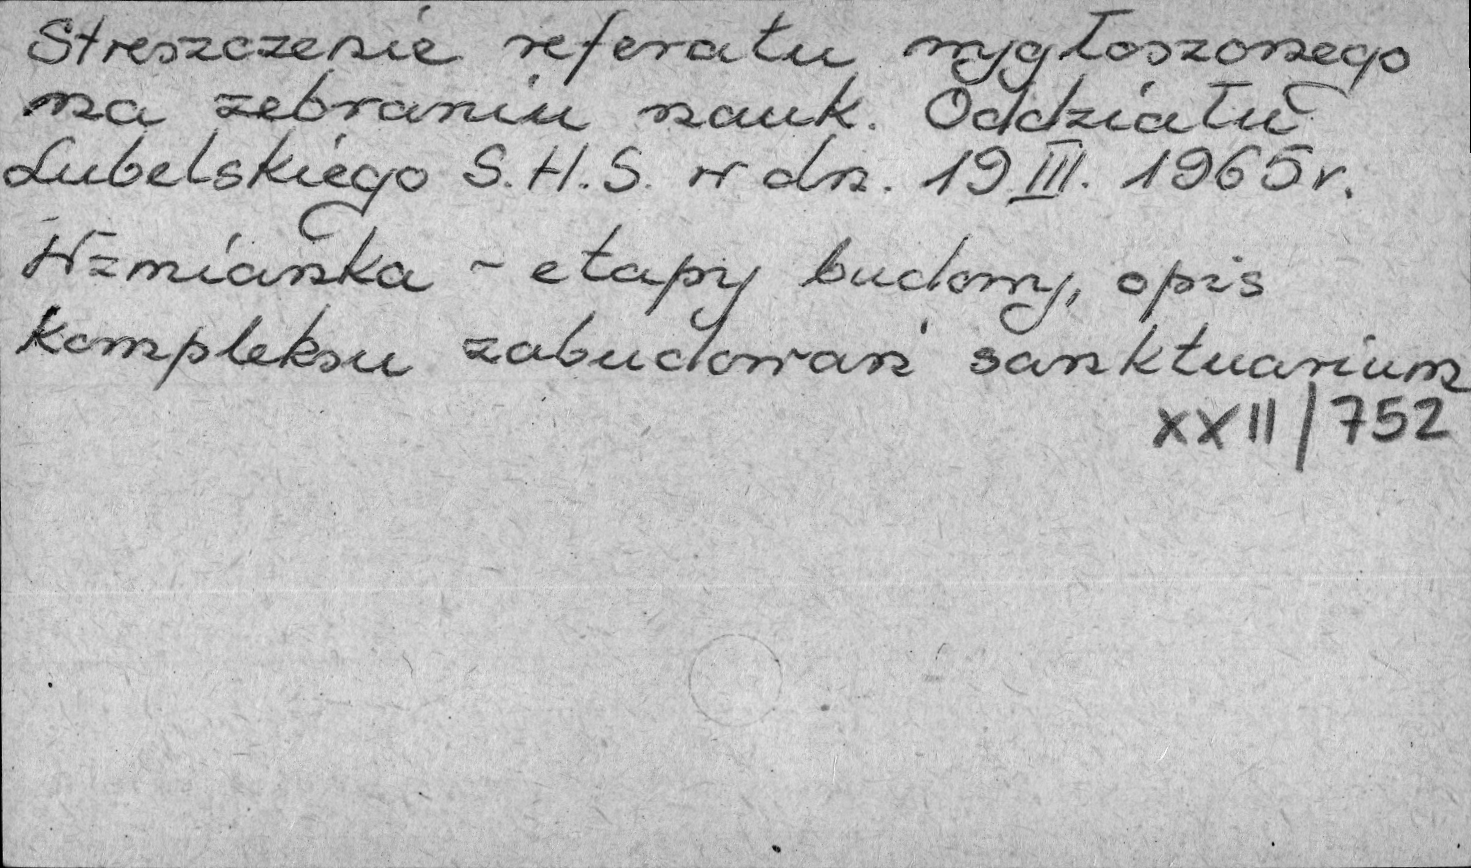 Streszczenie referatu wygłoszonego
na zebraniu nauk. Oddziału
Lubelskiego S.H.S. w dn. 19 III. 1965 r.
Wzmianka - etapy budowy, opis
kompleksu zabudowań sanktuarium
XXII/752